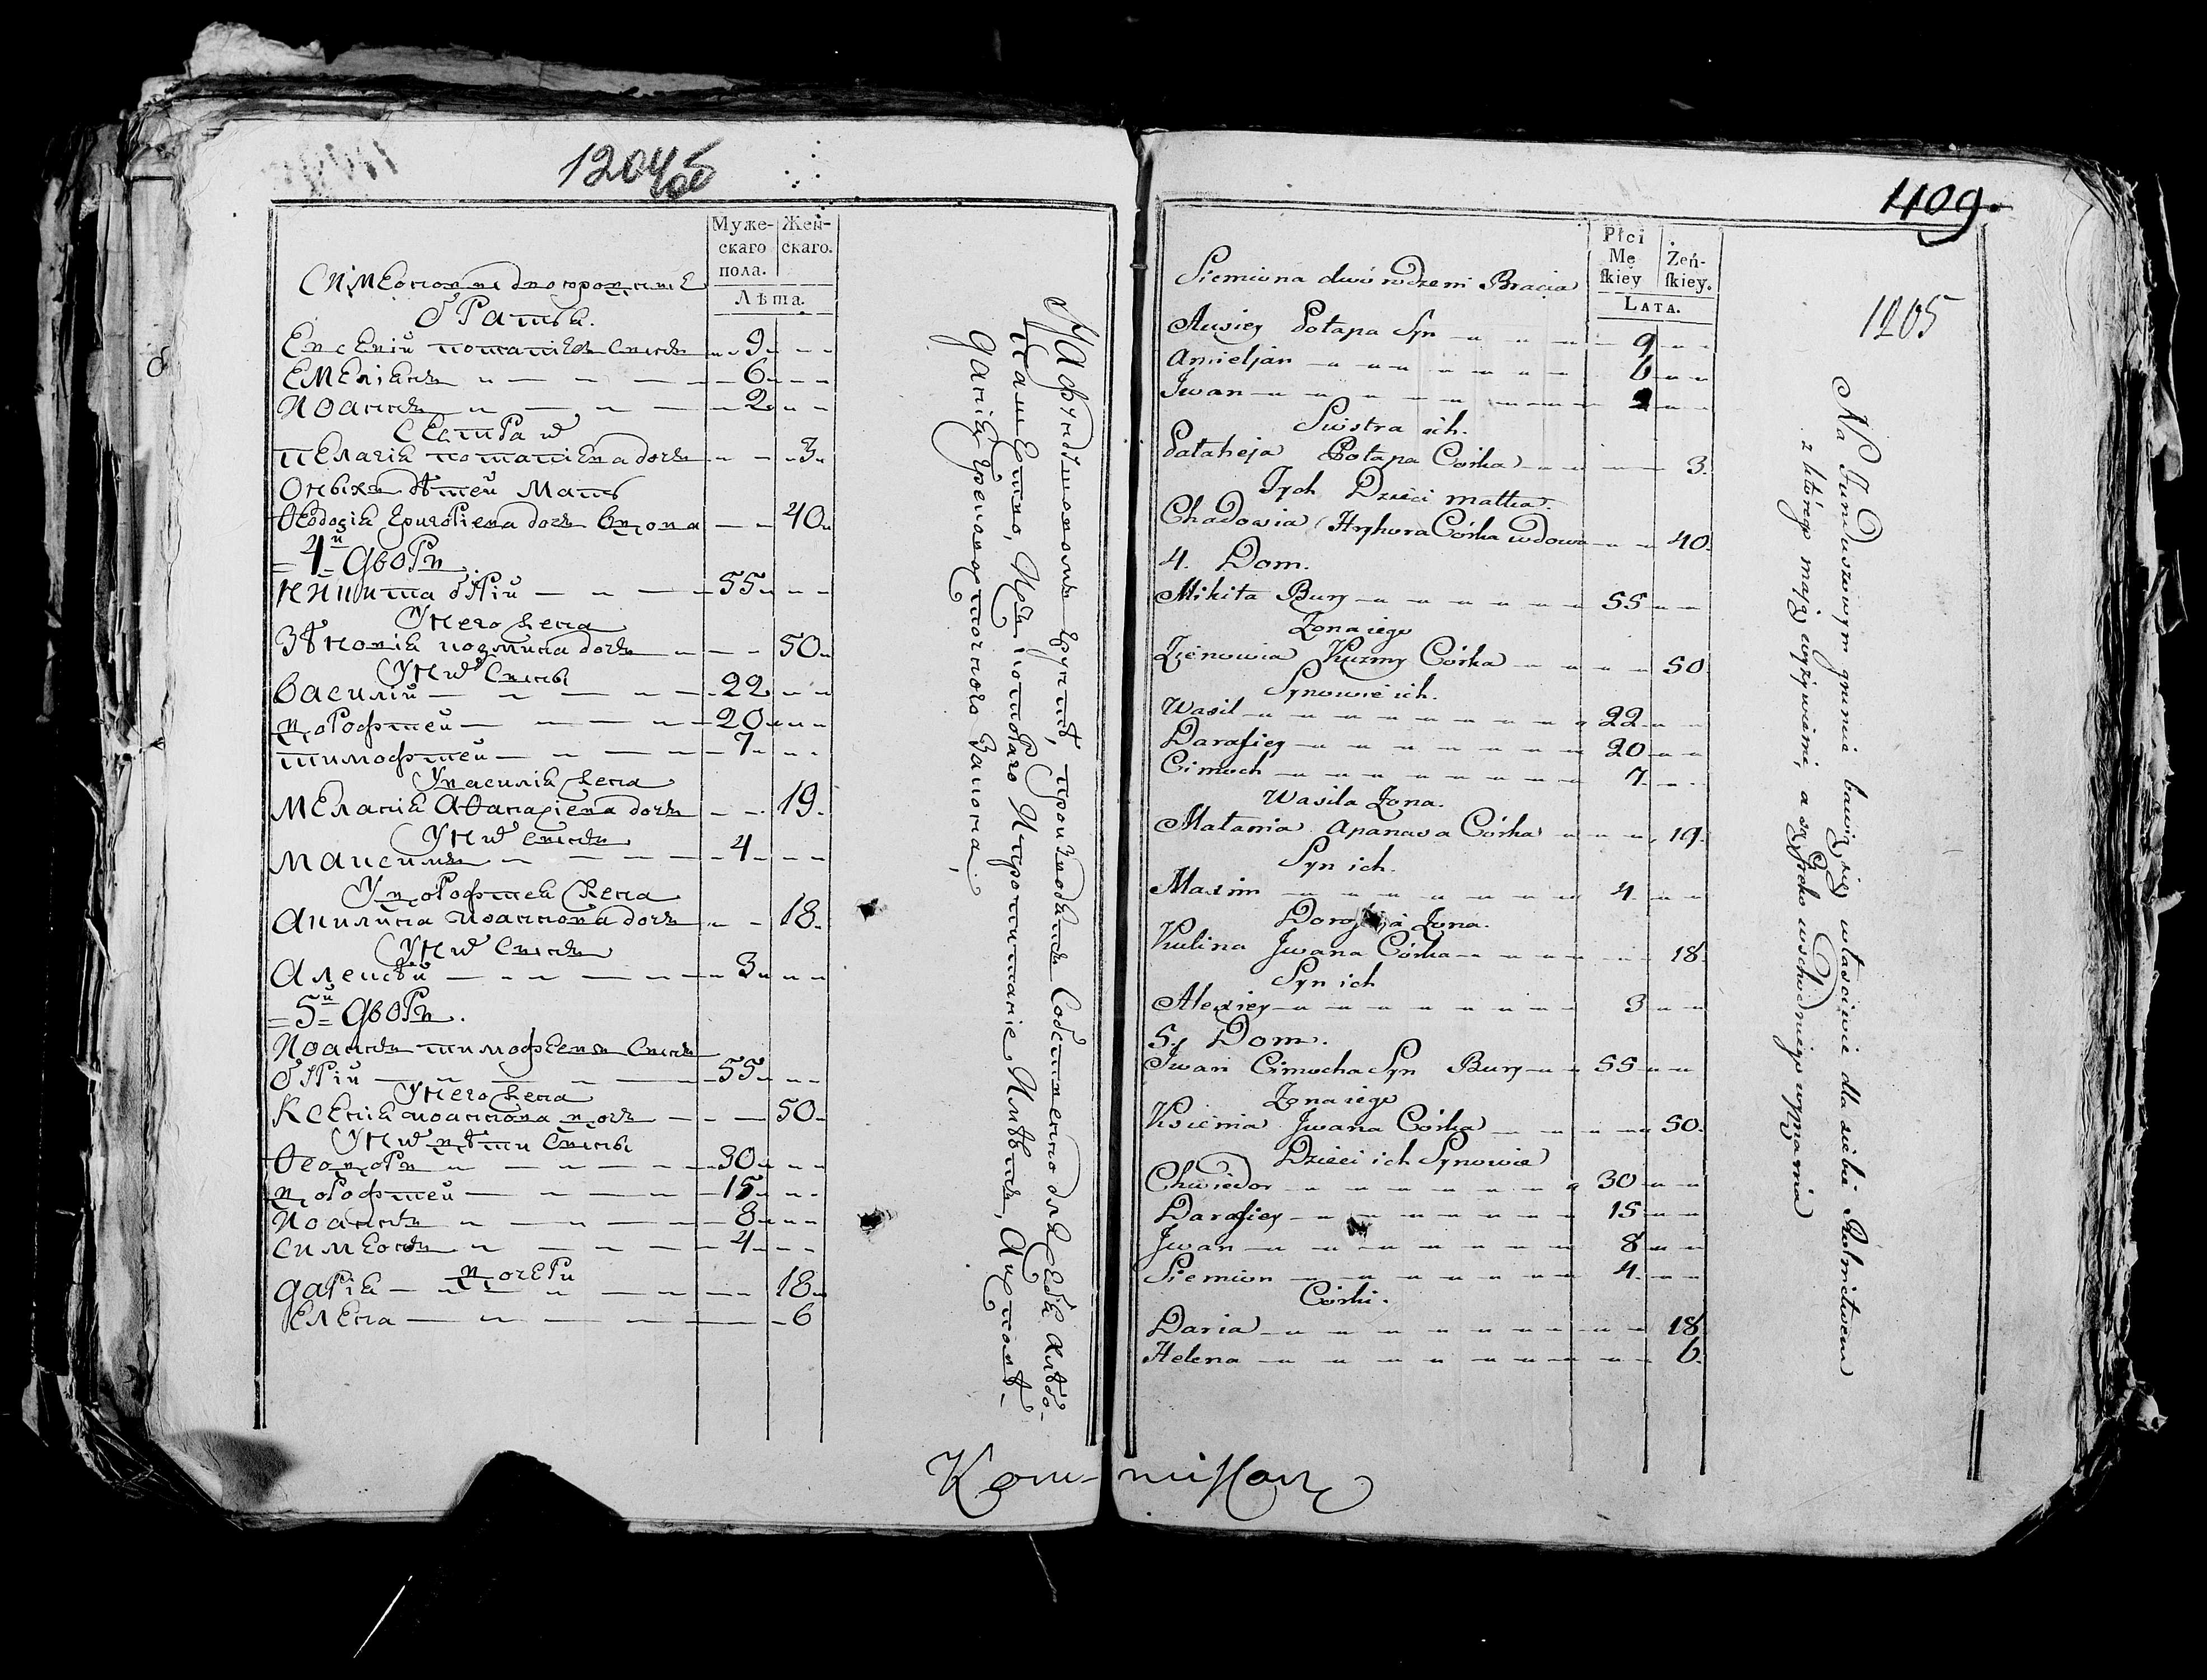 1204об
Муже-
скаго
пола.
Жен-
скаго.
Лѣта.
Симеоновы двоюродные
братья.
Евсевій потапіевъ сынъ 9
Емеліанъ 6
Иоаннъ 2
Сестра их
пелагія потапіева дочь 3
Оныхъ дѣтей мать
Ѳеодосія григоріева дочь вдова 40
4й Дворъ.
Никита бурій 55
У него жена
Зѣновія козмина дочь 50
У них сыны
Василій 22
дорофтей 20
тимофтей 7
У василія жена
Меланія Аѳанасіева дочь 19
У них сынъ
Максимъ 4
У дорофтея жена
Акилина иоаннова дочь 18
У них сынъ
Алексѣй 3
5й Дворъ.
Иоаннъ тимофеевъ сынъ
бурій 55
У него жена
Ксенія иоаннова дочь 50
У них дѣти сыны
Ѳеодоръ 30
дорофтей 15
Иоаннъ 8
Симеонъ 4
дочери
Дарія 18
Елена 6
На фундушовомъ грунтѣ, производятъ собственно для себя хлѣбо-
пашество,
409.
1205
Płci
Mę
skiey
Żeń-
skiey.
Lata.
Siemiona dwórodzeni Bracia
Ausiey Potapa Syn 9
Amieljan 6
Jwan 2
Siostra ich.
Palaheja Potapa Córka 3.
Tych Dzieci matka.
Chadosia Hryhora Córka wdowa 40.
4. Dom.
Mikita Bury 55
Żona iego
Zienowia Kuzmy Córka 50
Synowie ich.
Wasil 22
Darafiey 20
Cimoch 7
Wasila Żona.
Małania Apanasa Córka 19.
Syn ich.
Maxim 4
Żona.
Kulina Jwana Córka 18.
Syn ich
Alexiey 3
5. Dom.
Jwan Cimocha Syn Bury 55
Żona iego
Ksienia Jwana Córka 50.
Dzieci ich Synowie
Chwiedor 30
Darafiey 15
Jwan 8
Siemion 4
Córki.
Daria 18
Helena 6.
Na Funduszowym gruncie bawią się właściwie dla siebie Rolnictwem
z którego mają wyżywienie, a
Kom-missarz